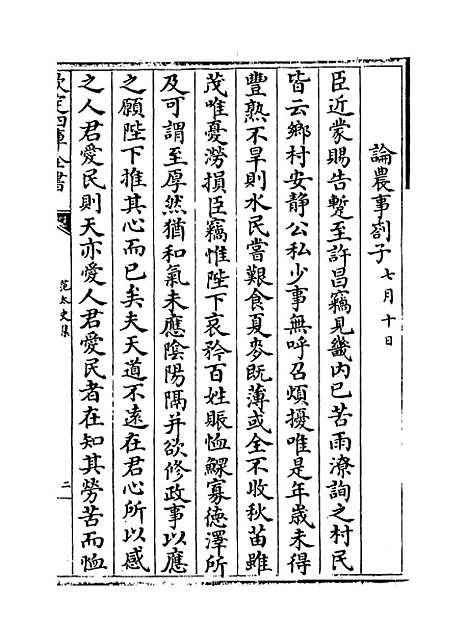 論農事劄子七月十日
臣近蒙賜告蹔至許昌竊見畿内已苦雨潦詢之村民
皆云鄉村安靜公私少事無呼召煩擾唯是年歳未得
豐熟不旱則水民嘗艱食夏麥既薄或全不收秋苗雖
茂唯憂澇損臣竊惟陛下哀矜百姓賑恤鰥寡徳澤所
及可謂至厚然猶和氣未應隂陽隔并欲修政事以應
之願陛下推其心而已矣夫天道不遠在君心所以感
之人君愛民則天亦愛人君愛民者在知其勞苦而恤
欽定四庫全書
范太史集
二